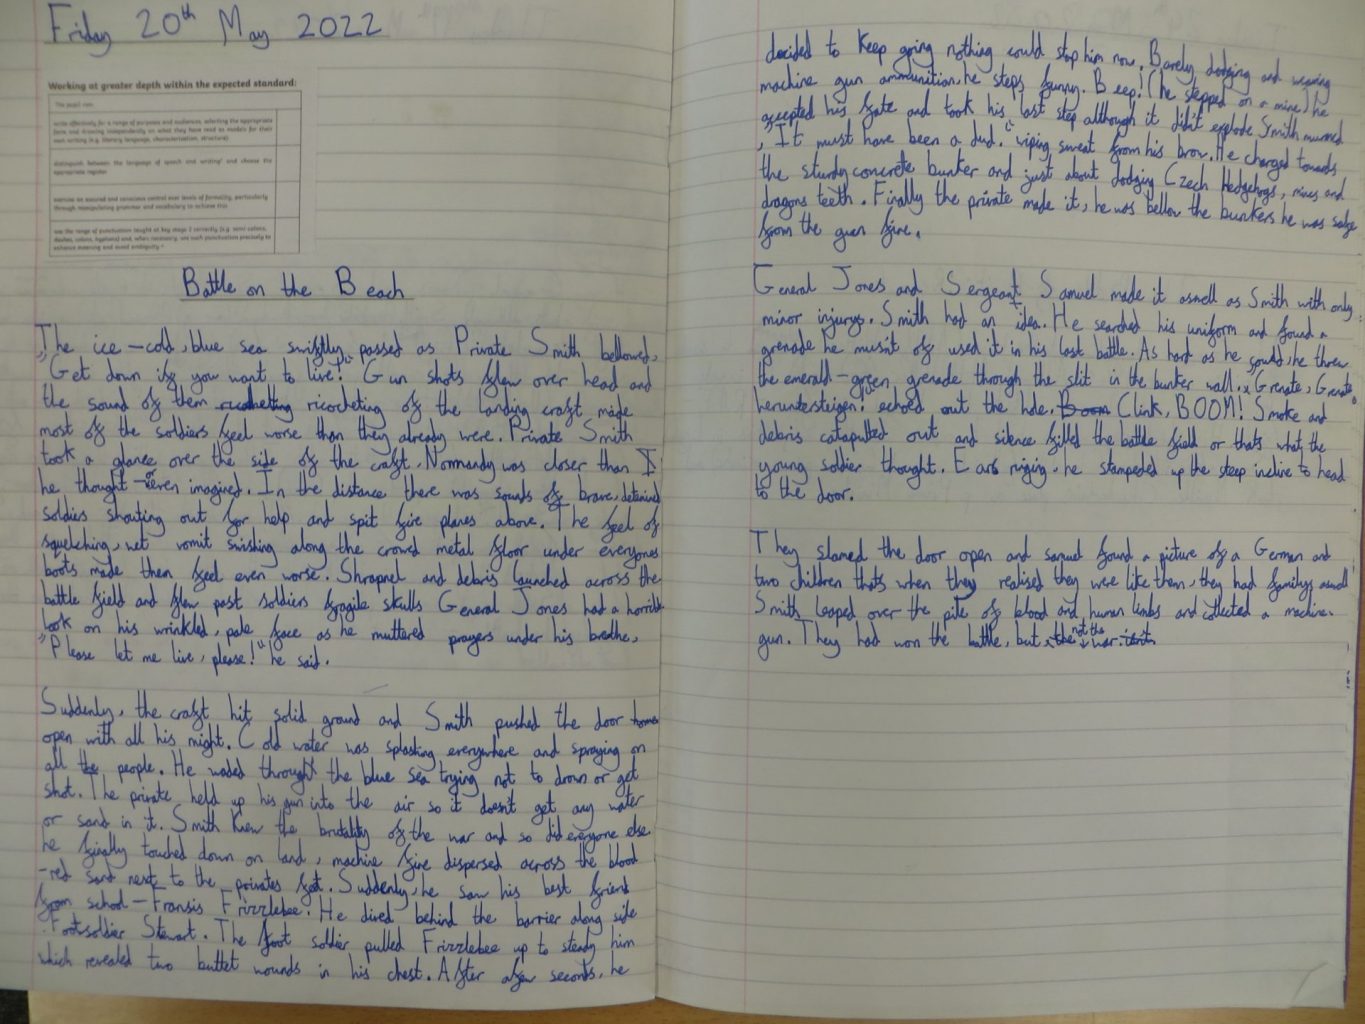 Friday 20th May 2022
Working at greater depth within the expected standard:
The pupil can:
write effectively for a range of purposes and audiences, selecting the appropriate
form and drawing independently on what they have read as models for their
own writing (e.g. literary language, characterisation, structure)
distinguish between the language of speech and writing and choose the
appropriate register
exercise an assured and conscious control over levels of formality, particularly
through manipulating grammar and vocabulary to achieve this
use the range of punctuation taught at key stage 2 correctly (e.g. semi-colons,
dashes, colons, hyphens) and, when necessary, use such punctuation precisely to
enhance meaning and avoid ambiguity.
Battle on the Beach
The ice-cold, blue sea swiftly passed as Private Smith bellowed,
"Get down if you want to live!" Gun shots flew over head and
the sound of them ricocheting of the landing craft made
most of the soldiers feel worse than they already were. Private Smith
took a glance over the side of the craft. Normandy was closer than
he thought-even imagined. In the distance there was sounds of brave,
soldiers shouting out for help and spit fire planes above. The feel of
squelching, wet vomit swishing along the crowd metal floor under everyones
boots made them feel even worse. Shrapnel and debris launched across the
battle field and flew past soldiers fragile skulls General Jones had a
look on his wrinkled, pale face as he muttered prayers under his breathe,
"Please let me live, please!" he said.
Suddenly, the craft hit solid ground and Smith pushed the door
open with all his might. Cold water was splashing everywhere and spraying on
all the people. He waded throught the blue sea trying not to drown or get
shot. The private held up his gun into the air so it doesn't get any water
or sand in it. Smith knew the brutality of the war and so did everyone else.
he finally touched down on land, machine fire dispersed across the blood
-red sand next to the privates feet. Suddenly, he saw his best friend
from school-Fransis Frizzlebee. He dived behind the barrier along side
Footsoldier Stewart. The foot soldier pulled Frizzlebee up to steady him
which revealed two bullet wounds in his chest. After a few seconds, he
decided to keep going nothing could stop him now. Barely dodging and weaving
machine gun ammunition, he steps funny. Beep! (he stepped on a mine) he
accepted his fate and took his last step although it didn't explode Smith
"It must have been a dud." wiping sweat from his brow. He charged towards
the sturdy concrete bunker and just about dodging Czech Hedgehogs, mines and
dragons teeth. Finally the private made it, he was bellow the bunkers he was safe
from the gun fire.
General Jones and Sergeant Samuel made it aswell as Smith with only
minor injurys. Smith had an idea. He searched his uniform and found a
grenade he musn't of used it in his last battle. As hard as he could, he threw
the emerald-green, grenade through the slit in the bunker wall. "Grenate, Grenate
heruntersteigen!" echoed out the hole. Clink, BOOM! Smoke and
debris catapulted out and silence filled the battle field or thats what the
young soldier thought. Ears ringing, he stampeded up the steep incline to head
to the door.
They slamed the door open and samuel found a picture of a German and
two children thats when they realised they were like them, they had familys aswell
Smith leaped over the pile of blood and human limbs and collected a machine-
gun. They had won the battle, but not the war.